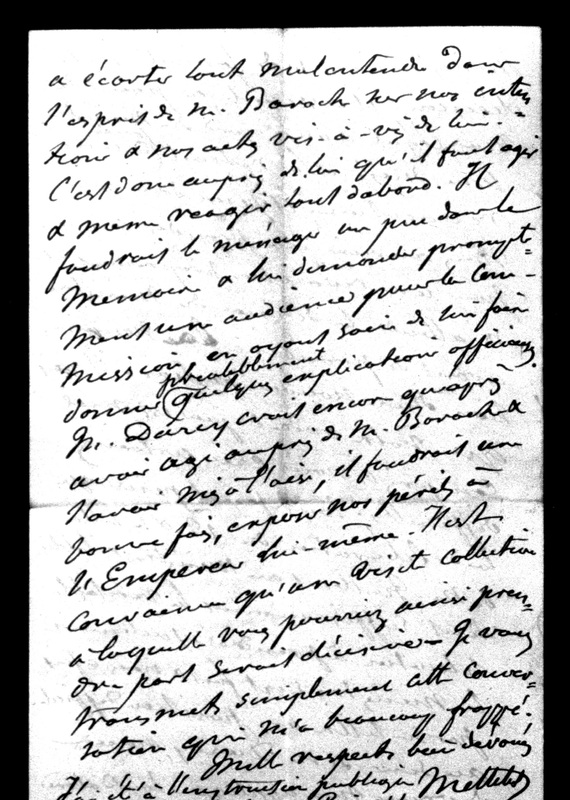 a écarter tout malentendu dans
l'esprit de M. Baroche sur nos inten=
tions & nos actes vis-à-vis de lui.
C'est donc auprès de lui qu'il faut agir
& meme reagir tout d'abord. Il
faudrait le ménager un peu dans le
Memoire & lui demander prompte-
ment une audience pour la Com-
mission, en ayant soin de lui faire
préalablement
donner quelques explications officieuses.
M. Darcy croit encore qu'après
avoir agi auprès de M. Baroche &
l'avoir mis à l'aise, il faudrait une
bonne fois, exposer nos périls à
l'Empereur lui-même. Il est
convaincu qu'une visite collective
a laquelle vous pourriez aussi pren=
dre part serait décisive. Je vous
transmets simplement cette conver=
sation qui m'a beaucoup frappé.
Mille respects bien dévoués
J'ai été à l'instruction publique Mettetal